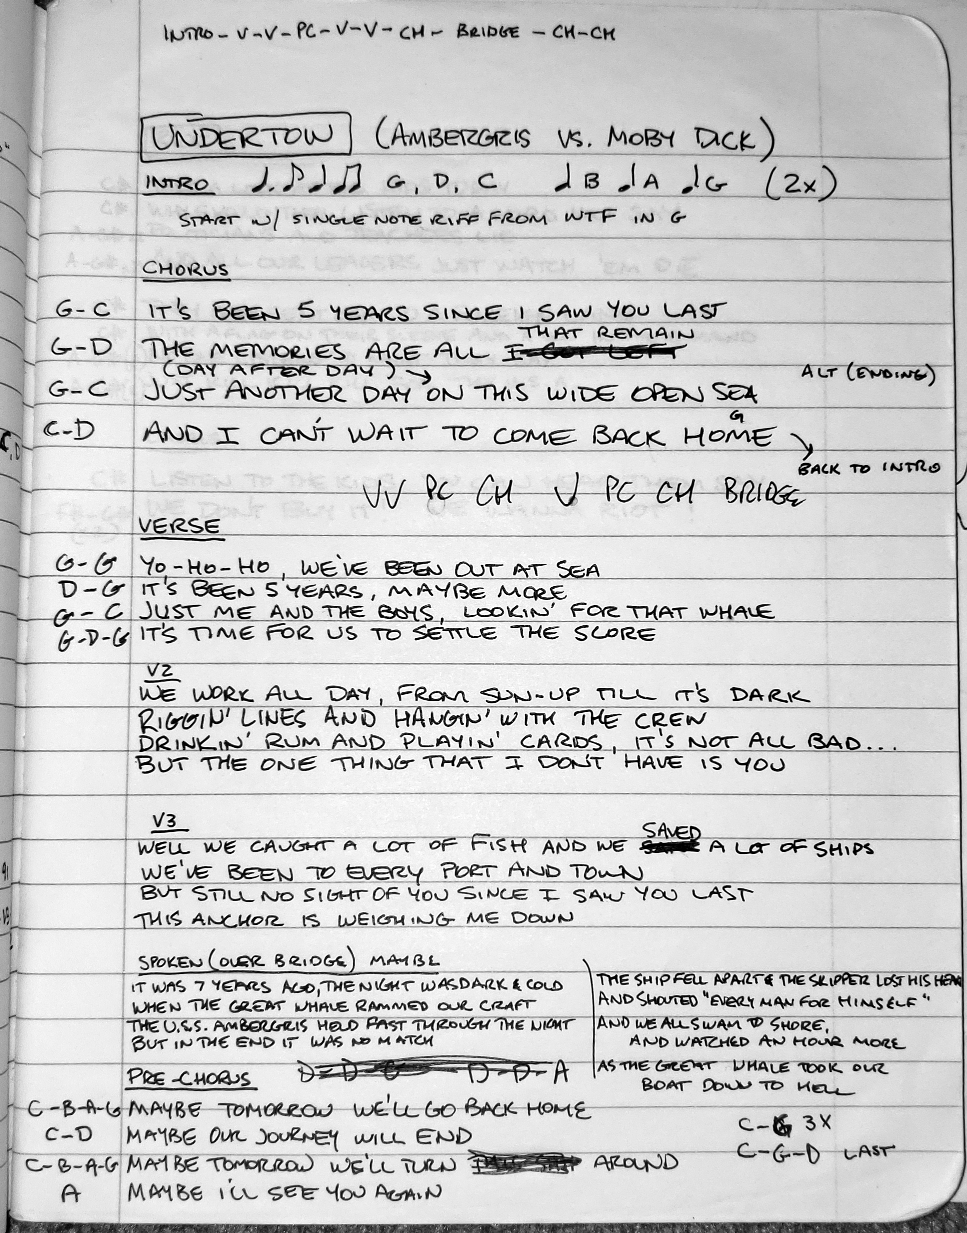 INTRO - V-V-PC-V-V-CH- BRIDGE - CH-CH
UNDERTOW (AMBERGRIS VS. MOBY DICK)
INTRO ♩. ♪ ♩ ♫ G, D, C ♩ B ♩ A ♩ G (2x)
START W/ SINGLE NOTE RIFF FROM WTF IN G
CHORUS
G-C IT'S BEEN 5 YEARS SINCE I SAW YOU LAST
THAT REMAIN
G-D THE MEMORIES ARE ALL I GOT LEFT
(DAY AFTER DAY) ↘ ALT (ENDING)
G-C JUST ANOTHER DAY ON THIS WIDE OPEN SEA
G
C-D AND I CAN'T WAIT TO COME BACK HOME ↘
BACK TO INTRO
VV PC CH V PC CH BRIDGE
VERSE
G-G YO-HO-HO, WE'VE BEEN OUT AT SEA
D-G IT'S BEEN 5 YEARS, MAYBE MORE
G-C JUST ME AND THE BOYS, LOOKIN' FOR THAT WHALE
G-D-G IT'S TIME FOR US TO SETTLE THE SCORE
V2
WE WORK ALL DAY, FROM SUN-UP TILL IT'S DARK
RIGGIN' LINES AND HANGIN' WITH THE CREW
DRINKIN' RUM AND PLAYIN' CARDS, IT'S NOT ALL BAD...
BUT THE ONE THING THAT I DON'T HAVE IS YOU
V3
SAVED
WELL WE CAUGHT A LOT OF FISH AND WE A LOT OF SHIPS
WE'VE BEEN TO EVERY PORT AND TOWN
BUT STILL NO SIGHT OF YOU SINCE I SAW YOU LAST
THIS ANCHOR IS WEIGHING ME DOWN
SPOKEN (OVER BRIDGE) MAYBE
IT WAS 7 YEARS AGO, THE NIGHT WAS DARK & COLD
WHEN THE GREAT WHALE RAMMED OUR CRAFT
THE U.S.S. AMBERGRIS HELD FAST THROUGH THE NIGHT
BUT IN THE END IT WAS NO MATCH
THE SHIP FELL APART & THE SKIPPER LOST HIS HEAD
AND SHOUTED "EVERY MAN FOR HIMSELF"
AND WE ALL SWAM TO SHORE,
AND WATCHED AN HOUR MORE
AS THE GREAT WHALE TOOK OUR
BOAT DOWN TO HELL
PRE-CHORUS D-D-G D-D-A
C-B-A-G MAYBE TOMORROW WE'LL GO BACK HOME
C-D MAYBE OUR JOURNEY WILL END
C-B-A-G MAYBE TOMORROW WE'LL TURN AROUND
A MAYBE I'LL SEE YOU AGAIN
C-G 3X
C-G-D LAST